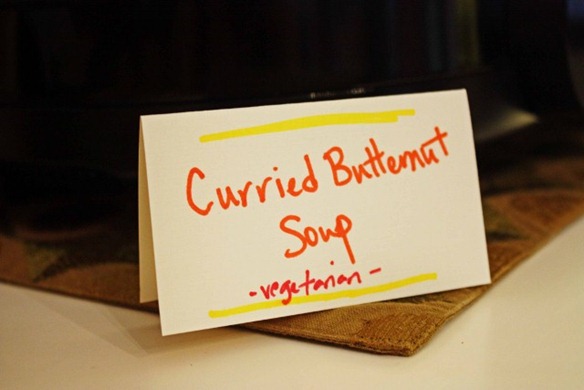 Curried Butternut
Soup
- vegetarian -